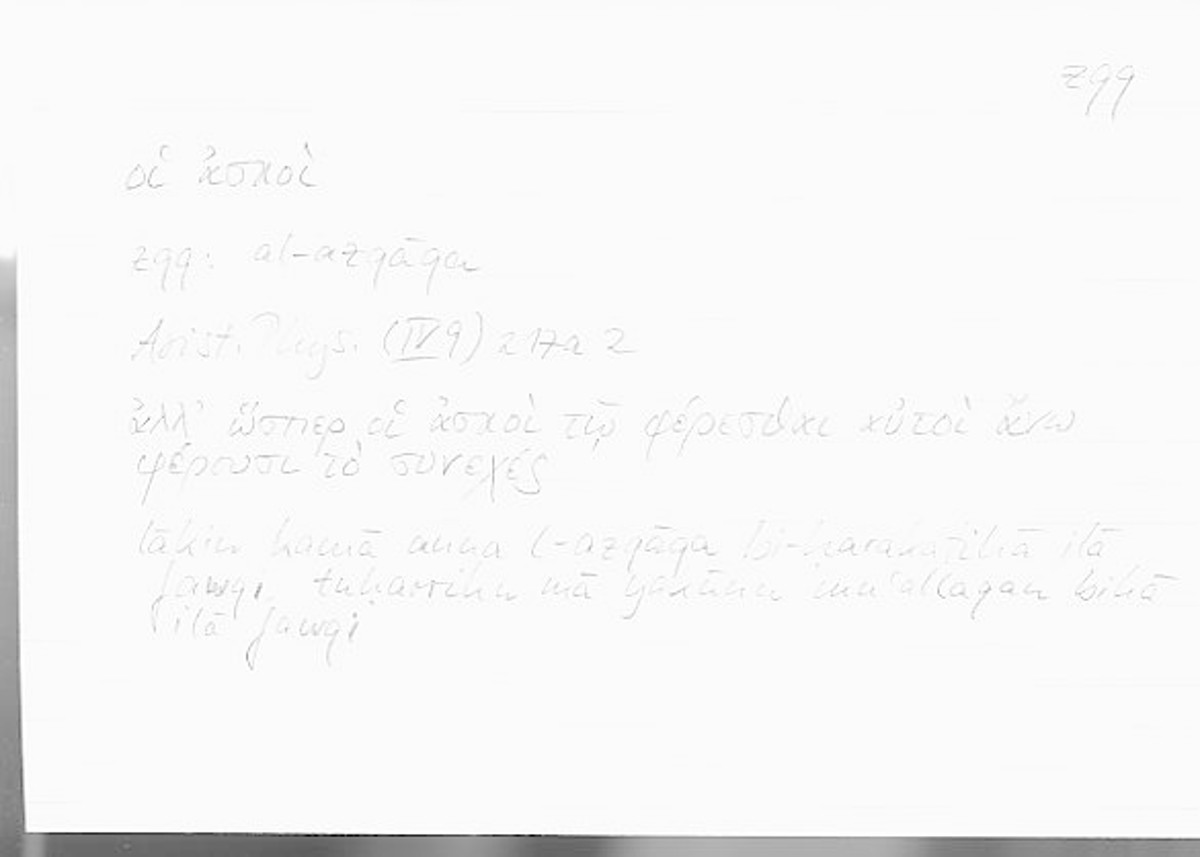 zqq
οἱ ἀσκοὶ
zqq: al-azqāqa
Arist. Phys. (IV 9) 217a 2
ἀλλ' ὥσπερ οἱ ἀσκοὶ τῷ φέρεσθαι αὐτοὶ ἄνω
φέρουσι τὸ συνεχές
lākin kamā anna l-azqāqa bi-ḥarakatihā ilā
fawqi tuḥarriku mā yakūnu muʿallaqan bihā
ilā fawqi